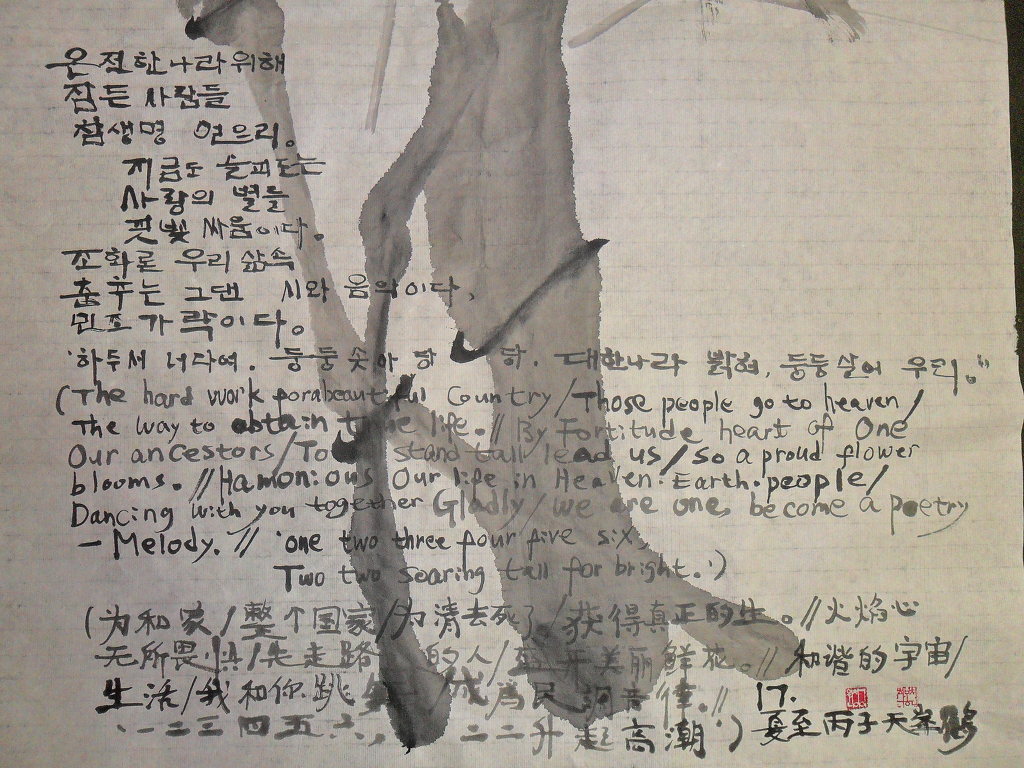 온전한나라위해
잠든 사람들
참생명 얻으리。
지금도 슬피도는
사랑의 별들
핏빛 싸움이다。
조화론 우리 삶속
춤추는 그댄 시와 음악이다,
민조가락이다。
'하두서 너다여. 둥둥솟아 당 당. 대한나라 밝혀, 둥둥살어 우리。"
(The hard work porabeautiful Country/Those people go to heaven/
The way to obtain true life.// By Fortitude heart of One
Our ancestors/To stand tall lead us/so a proud flower
blooms.//Hamonious Our life in Heaven.Earth.people/
Dancing with you together Gladly/we are one, become a poetry
—Melody.// 'one two three four five six,
Two two soaring tall for bright.')
(为和家/整个国家/为清去死了/获得真正的生。//火焰心
无所畏惧/先走路 的人/ 开美丽鲜花。//和谐的宇宙/
生活/我和你跳 /成为民词音律。// 17.
'一二三四五六, 二二升起高潮') 夏至丙子天峯